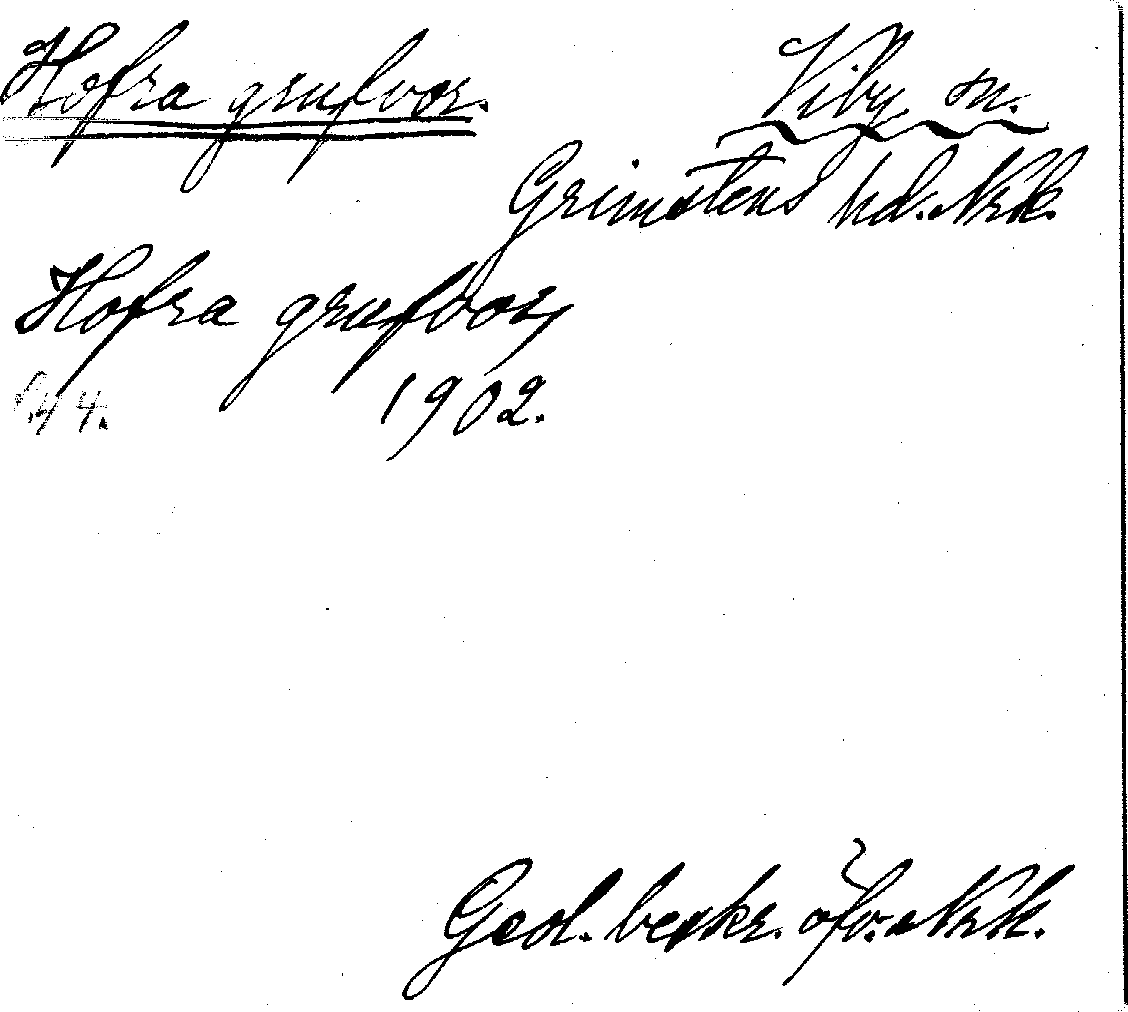 Hofra grufvor. Viby sn.
Grimstens hd. Nrk.
Hofra grufvor,
s. 44. 1902.
Geol. beskr. öfv. Nrk.